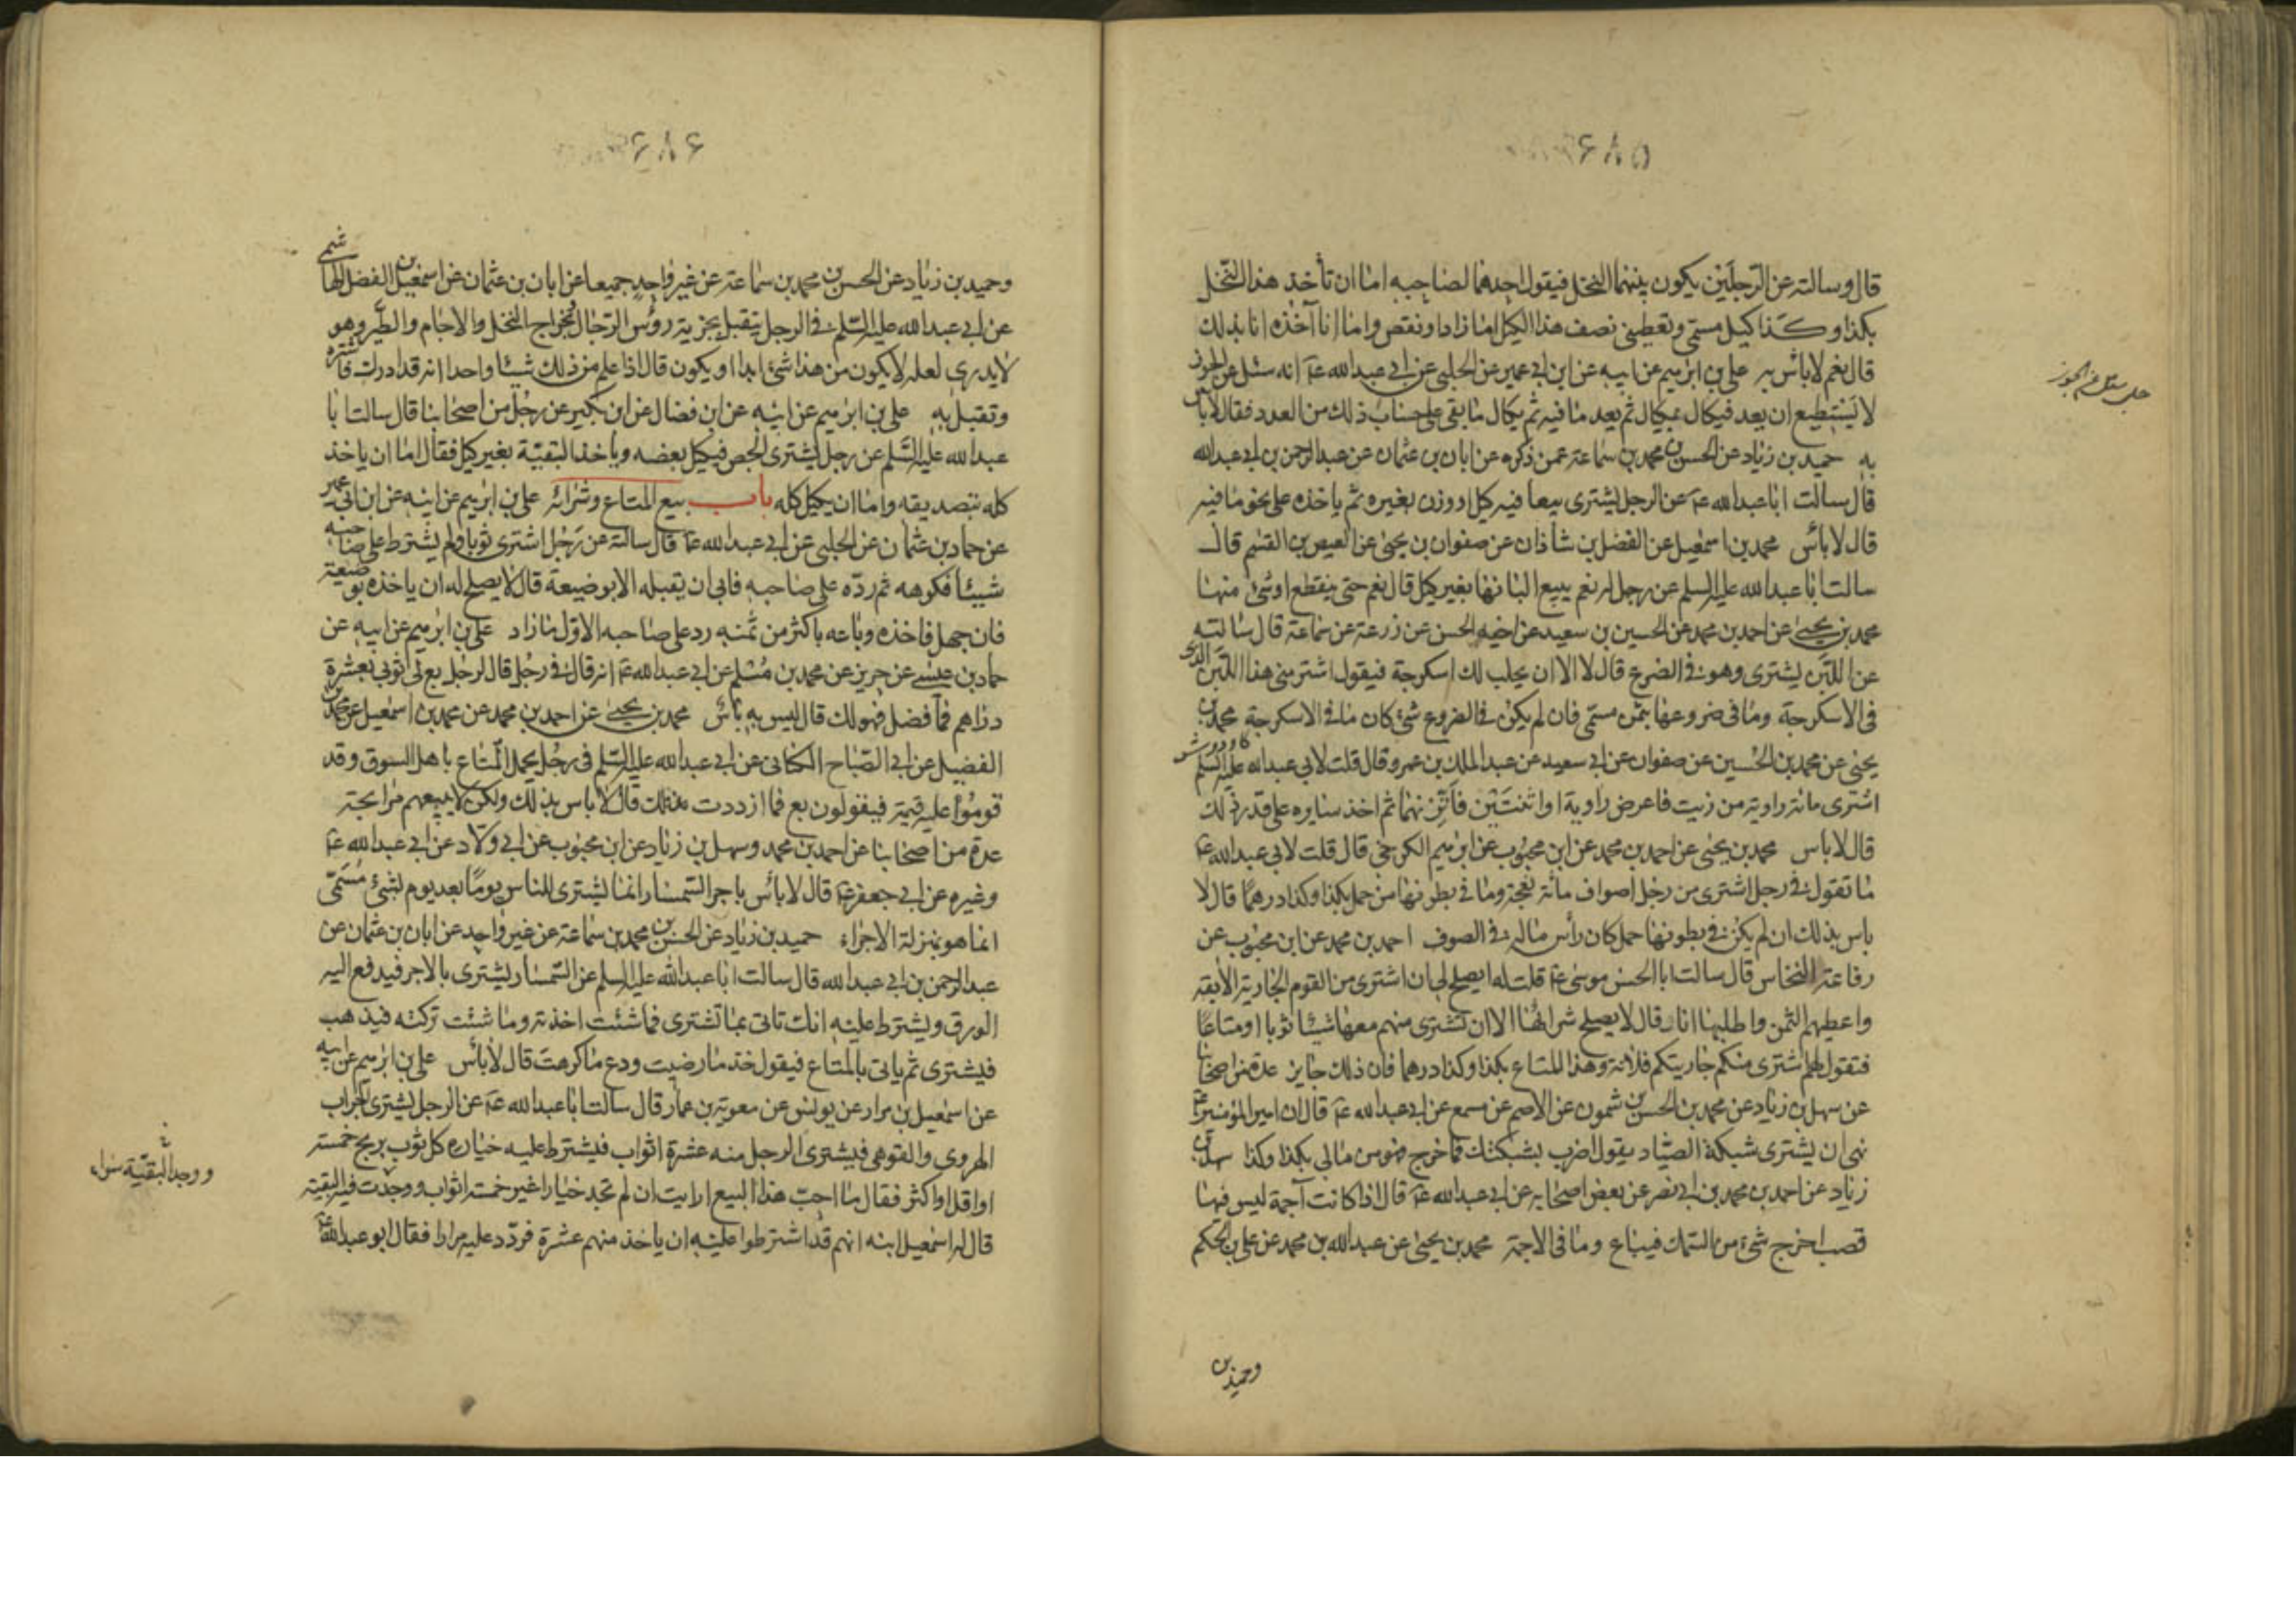 ۶۸۵
قال وسالته عن الرّجلَيْن يكون بينهما النخل فيقول احدهما لصاحبه اما ان تأخذ هذا النّخل
بكذا وكذا كيل مسمّى وتعطيني نصف هذا الكيل اما زاد او نقص واما انا آخذه انا بذلك
قال نعم لا بأس به علي بن ابرهيم عن ابيه عن ابن ابي عمير عن الحلبي عن ابي عبد الله عـ انه سئل عن الجوز
لا يَسْتطيع ان يعد فيكال بمكيال ثم يعد ما فيه ثم يكال ما بقي على حساب ذلك من العدد فقال لا بأس
به حميد بن زياد عن الحسن بن محمد بن سماعة عمن ذكره عن ابان بن عثمان عن عبد الرحمن بن ابي عبد الله
قال سالت ابا عبد الله عـ عن الرجل يشترى بيعا فيه كيل او وزن بغيره ثم ياخذه على نحو ما فيه
قال لا بأس محمد بن اسمعيل عن الفضل بن شاذان عن صفوان بن يحيى عن العيص بن القسم قال
سالت ابا عبد الله عليه السلم عن رجل له نعم يبيع البانها بغير كيل قال نعم حتى ينقطع او شئ منها
محمد بن يحيى عن احمد بن محمد عن الحسين بن سعيد عن اخيه الحسن عن زرعة عن سماعة قال سالته
عن اللبَن يشترى وهو في الضرع قال لا الا ان يحلب لك اسكرجة فيقول اشتر مني هذا اللبَن الذى
في الاسكرجة وما في ضروعها بثمن مسمّى فان لم يكن في الضروع شئ كان ما في الاسكرجة محمد بن
يحيى عن محمد بن الحُسين عن صفوان عن ابي سعيد عن عبد الملك بن عمرو قال قلت لابي عبد الله عليه السلم
اشترى مائة راوية من زيت فاعرض راوية او اثنتَيْن فأتزنهما ثم اخذ سايره على قدر ذلك
قال لا باس محمد بن يحيى عن احمد بن محمد عن ابن محبوب عن ابرهيم الكرخي قال قلت لابي عبد الله عـ
ما تقول في رجل اشترى من رجل اصواف مائة نعجة وما في بطونها من حمل بكذا وكذا درهمًا قال لا
باس بذلك ان لم يكن في بطونها حمل كان رأس ماله في الصوف احمد بن محمد عن ابن محبوب عن
رفاعة النخاس قال سالت ابا الحسن موسى عـ قلت له ايصلح لي ان اشترى من القوم الجارية الآبقة
واعطيهم الثمن واطلبها انا قال لا يصلح شراؤها الا ان تشترى منهم معها شيئا ثوبا او متاعًا
فتقول لهم اشترى منكم جاريتكم فلانة وهذا المتاع بكذا وكذا درهما فان ذلك جايز عدة من اصحابنا
عن سهل بن زياد عن محمد بن الحسن بن شمون عن الاصم عن مسمع عن ابي عبد الله عـ قال ان امير المؤمنين عـ
نهى ان يشترى شبكة الصيّاد يقول اضرب بشبكتك فما خرج فهو من مالي بكذا وكذا سهل بن
زياد عن احمد بن محمد بن ابي نصر عن بعض اصحابه عن ابي عبد الله عـ قال اذا كانت آجمة ليس فيها
قصب اخرج شئ من السّمك فيباع وما في الاجمة محمد بن يحيى عن عبد الله بن محمد عن علي بن الحكم
وحميد بن
۶۸۶
وحميد بن زياد عن الحسن بن محمد بن سماعة عن غير واحد جميعا عن ابان بن عثمان عن اسمعيل بن الفضل الهاشمى
عن ابي عبد الله عليه السّلم في الرجل يتقبل بجزية رؤس الرّجال وبخراج النخل والاجام والطير وهو
لا يدري لعله لا يكون من هذا شئ ابدا او يكون قال اذا علم من ذلك شيئا واحدا انه قد ادرك فاشتره
وتقبل به علي بن ابرهيم عن ابيه عن ابن فضال عن ابن بكير عن رجُل من اصحابنا قال سالت ابا
عبد الله عليه السَّلم عن رجل يشترى الجص فيكيل بعضه وياخذ البقيّة بغير كيل فقال اما ان ياخذ
كله بتصديقه واما ان يكيل كله باب بيع المتاع وشرائه علي بن ابرهيم عن ابيه عن ابن ابي عمير
عن حماد بن عثمان عن الحلبي عن ابي عبد الله عـ قال سالته عن رَجُل اشترى ثوبا ولم يشترط على صاحبه
شيئا فكرهه ثم ردّه على صاحبه فابى ان يقبله الا بوضيعة قال لا يصلح له ان ياخذه بوضيعة
فان جهل فاخذه وباعه باكثر من ثمنه رد على صاحبه الاوّل ما زاد علي بن ابرهيم عن ابيه عن
حماد بن عيسى عن حريز عن محمد بن مُسْلم عن ابي عبد الله عـ انه قال في رجُل قال لرجل بع لى ثوبي بعشرة
دراهم فما فضل فهو لك قال ليس به بأس محمد بن يحيى عن احمد بن محمد عن محمد بن اسمعيل عن محمد بن
الفضيل عن ابي الصّباح الكناني عن ابي عبد الله عليه السّلم في رجُل يحمل المتاع باهل السوق وقد
قوموا عليه قيمة فيقولون بع فما ازددت فلك قال لا باس بذلك ولكن لا يبيعهم مرابحة
عدة من اصحابنا عن احمد بن محمد وسهل بن زياد عن ابن محبوب عن ابي ولاد عن ابي عبد الله عـ
وغيره عن ابي جعفر عـ قال لا بأس باجر السّمسار انما يشترى للناس يومًا بعد يوم لشئ مُسَمّى
انما هو بمنزلة الاجراء حميد بن زياد عن الحسن بن محمد بن سماعة عن غير واحد عن ابان بن عثمان عن
عبد الرحمن بن ابي عبد الله قال سالت ابا عبد الله عليه السلم عن السّمسار يشترى بالاجر فيدفع اليه
الورق ويشترط عليه انك تاتي بما تشترى فما شئت اخذته وما شئت تركته فيذهب
فيشترى ثم ياتى بالمتاع فيقول خذ ما رضيت ودع ما كرهت قال لا بأس علي بن ابرهيم عن ابيه
عن اسمعيل بن مرار عن يونس عن معوية بن عمار قال سالت ابا عبد الله عـ عن الرجل يشترى الجراب
الهروي والقوهى فيشترى الرجل منه عشرة اثواب فيشترط عليه خياره كل ثوب بربح خمسة
او اقل او اكثر فقال ما احبّ هذا البيع ارايت ان لم تجد خيارا غير خمسة اثواب ووجدت فيه البقية
قال له اسمعيل ابنه انهم قد اشترطوا عليه ان ياخذ منهم عشرة فردّد عليه مرارا فقال ابو عبد الله عـ
ووجد البقيّة سواء